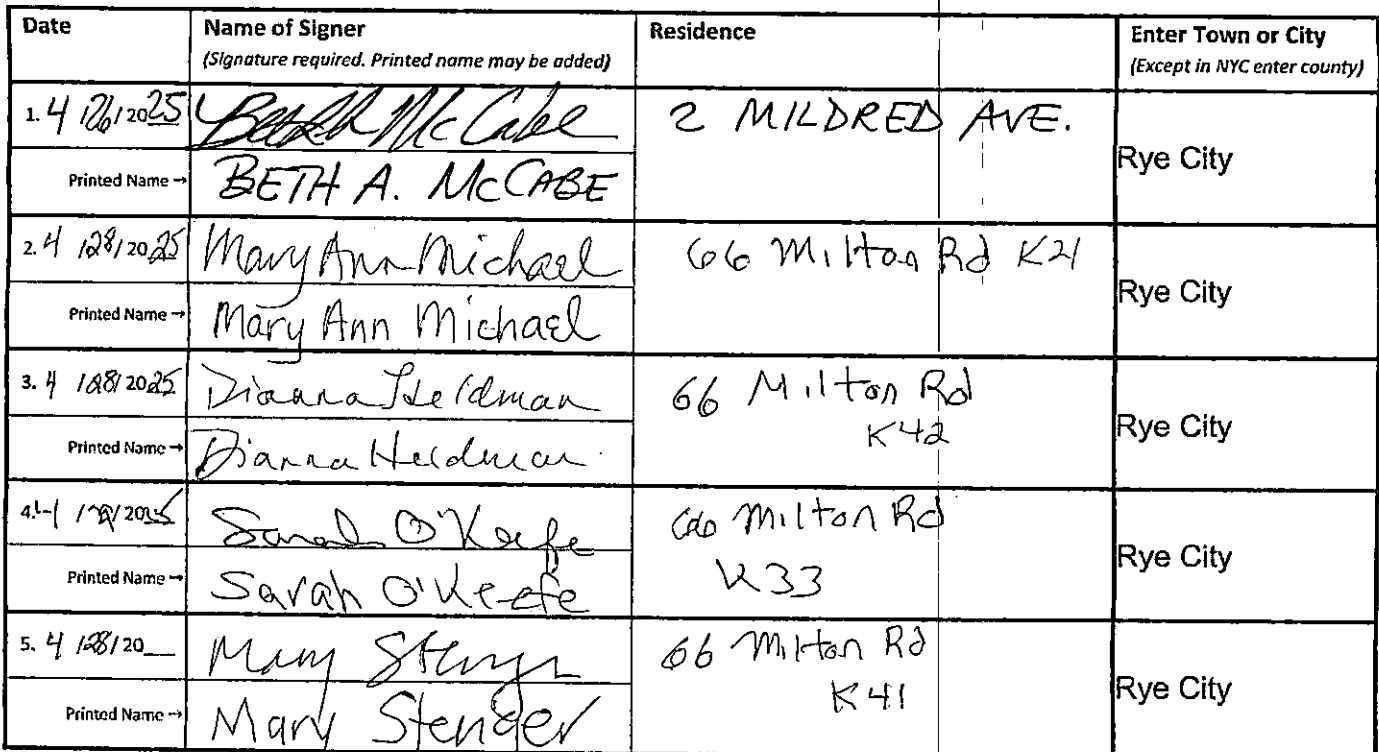 Date Name of Signer Residence Enter Town or City
(Signature required. Printed name may be added) (Except in NYC enter county)
1. 4 /26/2025 Beth McCabe 2 MILDRED AVE.
Rye City
Printed Name → BETH A. McCABE
2. 4 /28/2025 Mary Ann Michael 66 Milton Rd K21
Rye City
Printed Name → Mary Ann Michael
3. 4 /28/2025 Dianna Heidman 66 Milton Rd
K42 Rye City
Printed Name → Dianna Heidman
4. 4 / /2025 Sarah O'Keefe 66 Milton Rd
Rye City
Printed Name → Sarah O'Keefe K33
5. 4 /28/20__ Mary 66 Milton Rd
K41 Rye City
Printed Name → Mary Stenger